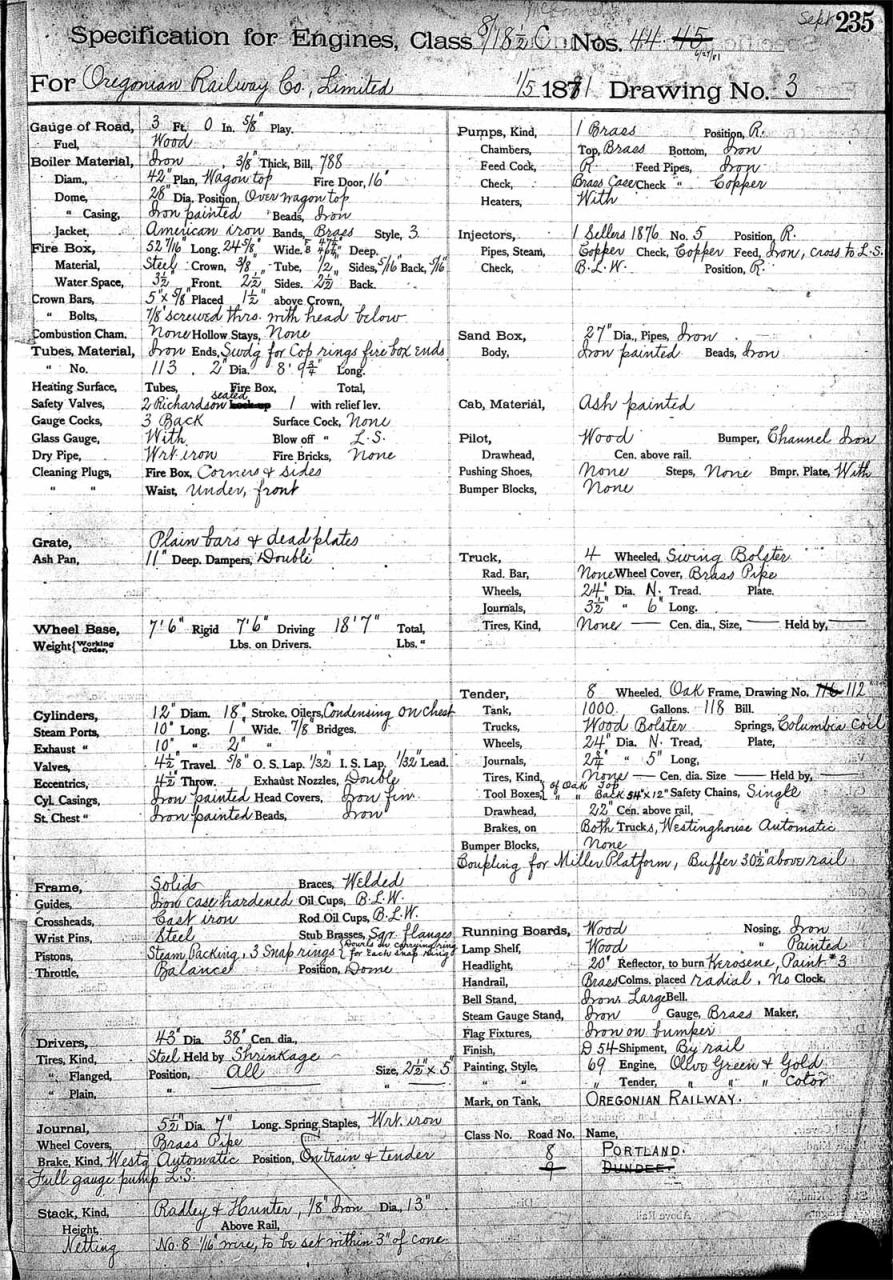 Sept 235
Specification for Engines, Class 8/18½ C Nos. 44 45
6/27/81
For Oregonian Railway Co., Limited 1/5 1881 Drawing No. 3
Gauge of Road, 3 Ft. 0 In. 5/8" Play.
Fuel, Wood
Boiler Material, Iron, 3/8" Thick, Bill, 788
Diam., 42" Plan, Wagon top Fire Door, 16"
Dome, 28" Dia. Position, Over wagon top
" Casing, Iron painted Beads, Iron
Jacket, American iron Bands, Brass Style, 3
Fire Box, 52 7/16" Long. 24 5/8" Wide. Deep.
Material, Steel Crown, 3/8, Tube, 1/2, Sides, 5/16" Back, 5/16"
Water Space, 3½ Front. 2½ Sides. 2½ Back.
Crown Bars, 5" x 5/8" Placed 1½" above Crown,
" Bolts, 7/8" screwed thro. with head below
Combustion Cham. None Hollow Stays, None
Tubes, Material, Iron Ends, Swdg for Cop rings fire box ends
" No. 113. 2" Dia. 8' 9¾" Long.
Heating Surface, Tubes, Fire Box, Total,
Safety Valves, 2 Richardson sealed Lock-up 1 with relief lev.
Gauge Cocks, 3 Back Surface Cock, None
Glass Gauge, With Blow off " L.S.
Dry Pipe, Wrt iron Fire Bricks, None
Cleaning Plugs, Fire Box, Corners & sides
" " Waist, Under, front
Grate, Plain bars & dead plates
Ash Pan, 11" Deep. Dampers, Double
Wheel Base, 7' 6" Rigid 7' 6" Driving 18' 7" Total,
Weight { Working Order, Lbs. on Drivers. Lbs. "
Cylinders, 12" Diam. 18" Stroke. Oilers, Condensing on chest
Steam Ports, 10" Long. 1" Wide. 7/8" Bridges.
Exhaust " 10" " 2" "
Valves, 4½" Travel. 5/8" O. S. Lap. 1/32" I. S. Lap, 1/32" Lead.
Eccentrics, 4½" Throw. Exhaust Nozzles, Double
Cyl. Casings, Iron painted Head Covers, Iron fin.
St. Chest " Iron painted Beads, Iron
Frame, Solids Braces, Welded
Guides, Iron case hardened Oil Cups, B.L.W.
Crossheads, Cast iron Rod Oil Cups, B.L.W.
Wrist Pins, Steel Stub Brasses, Sqr. flanges
Pistons, Steam Packing, 3 Snap rings { Dowels on carrying ring for each snap ring
Throttle, Balance Position, Dome
Drivers, 43" Dia. 38" Cen. dia.,
Tires, Kind, Steel Held by Shrinkage
" Flanged, Position, All Size, 2½" x 5"
" Plain, " "
Journal, 5½" Dia. 7" Long. Spring Staples, Wrt. iron
Wheel Covers, Brass Pipe
Brake, Kind, Westg Automatic Position, On train & tender
Full gauge pump L.S.
Stack, Kind, Radley & Hunter, 1/8" Iron Dia, 13"
Height, Above Rail,
Netting No. 8 1/16" wire, to be set within 3" of cone.
Pumps, Kind, 1 Brass Position, R.
Chambers, Top, Brass Bottom, Iron
Feed Cock, R Feed Pipes, Iron
Check, Brass Case Check " Copper
Heaters, With
Injectors, 1 Sellers 1876 No. 5 Position, R.
Pipes, Steam, Copper Check, Copper Feed, Iron, cross to L.S.
Check, B.L.W. Position, R.
Sand Box, 27" Dia., Pipes, Iron
Body, Iron painted Beads, Iron
Cab, Material, Ash painted
Pilot, Wood Bumper, Channel Iron
Drawhead, Cen. above rail.
Pushing Shoes, None Steps, None Bmpr. Plate, With
Bumper Blocks, None
Truck, 4 Wheeled, Swing Bolster
Rad. Bar, None Wheel Cover, Brass Pipe
Wheels, 24" Dia. N. Tread. Plate.
Journals, 3½" " 6" Long.
Tires, Kind, None Cen. dia., Size, Held by,
Tender, 8 Wheeled, Oak Frame, Drawing No. 116 112"
Tank, 1000 Gallons. 118 Bill.
Trucks, Wood Bolster Springs, Columbia Coil
Wheels, 24" Dia. N. Tread, Plate,
Journals, 2¾" " 5" Long,
Tires, Kind, None Cen. dia. Size Held by,
Tool Boxes, { of Oak Top " " Back 54" x 12" Safety Chains, Single
Drawhead, 22" Cen. above rail,
Brakes, on Both Trucks, Westinghouse Automatic
Bumper Blocks, None
Coupling for Miller Platform, Buffer 30½" above rail
Running Boards, Wood Nosing, Iron
Lamp Shelf, Wood " Painted
Headlight, 20" Reflector, to burn Kerosene, Paint #3
Handrail, Brass Colms. placed radial, No Clock,
Bell Stand, Iron, Large Bell.
Steam Gauge Stand, Iron Gauge, Brass Maker,
Flag Fixtures, Iron on bumper
Finish, D 54 Shipment, By rail
Painting, Style, 69 Engine, Olive Green & Gold
" " " Tender, " " " Color
Mark, on Tank, OREGONIAN RAILWAY.
Class No. Road No. Name,
8 PORTLAND.
9 DUNDEE.